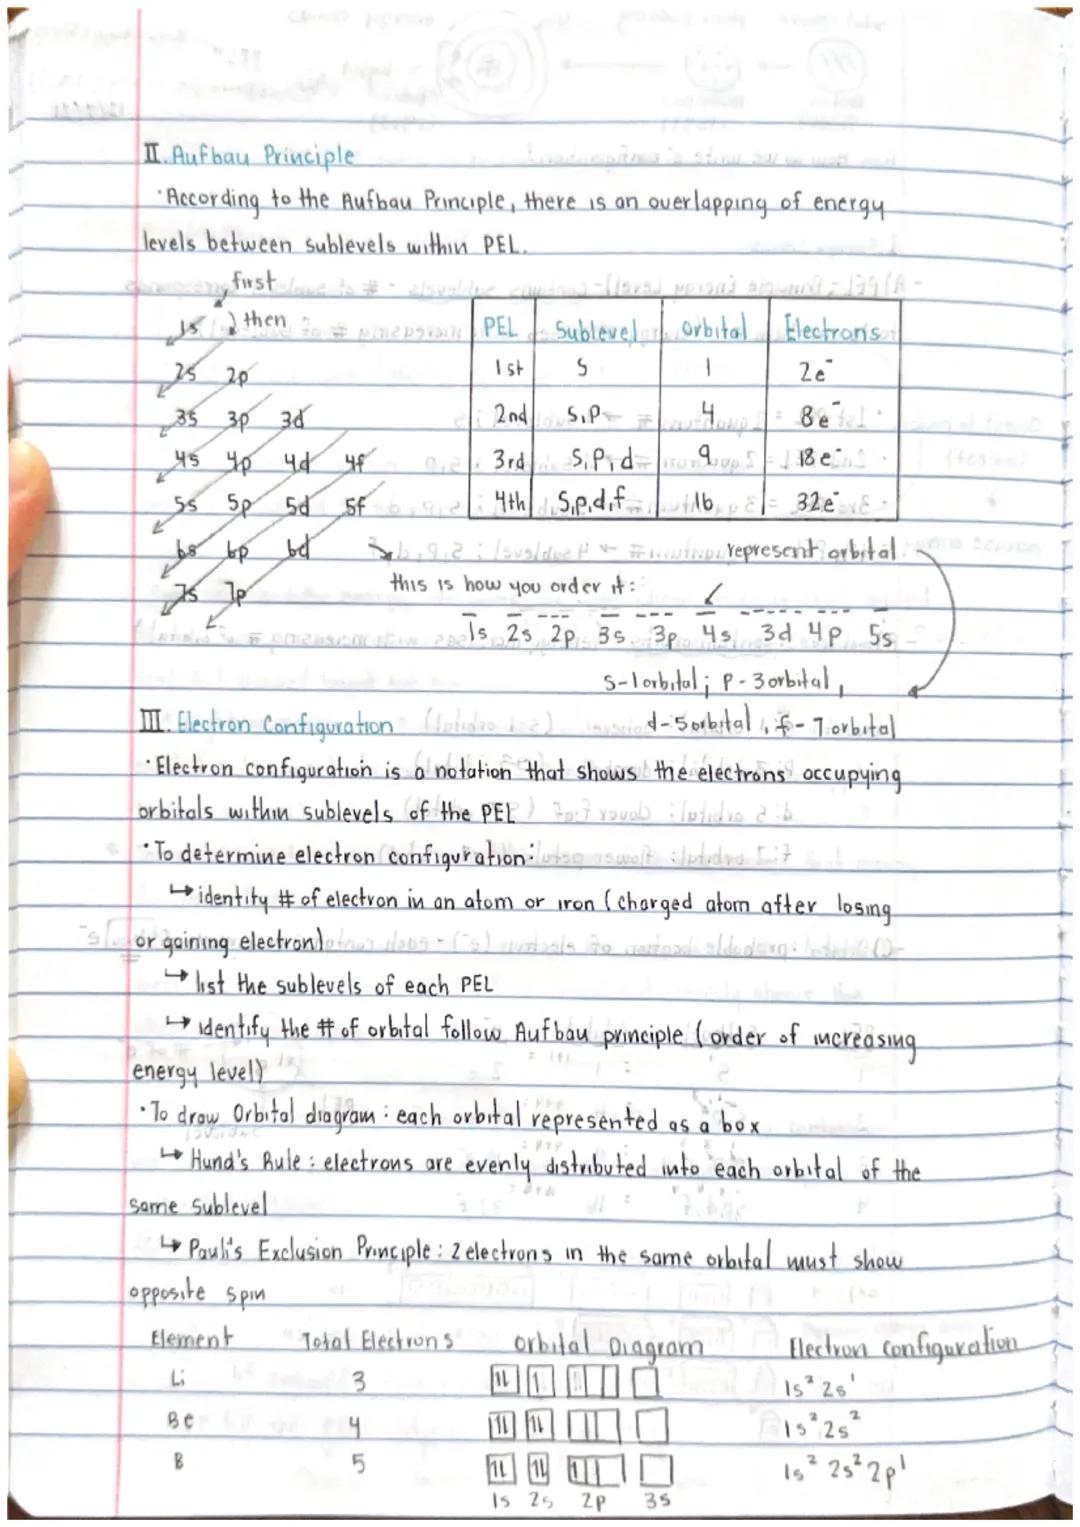 II. Aufbau Principle
· According to the Aufbau Principle, there is an overlapping of energy
levels between sublevels within PEL.
first
then
1s
2s 2p
3s 3p 3d
4s 4p 4d 4f
5s 5p 5d 5f
6s 6p 6d
7s 7p
PEL Sublevel orbital Electrons
1st S 1 2e⁻
2nd S,P 4 8e⁻
3rd S,P,d 9 18e⁻
4th S,P,d,f 16 32e⁻
represent orbital
this is how you order it:
1s 2s 2p 3s 3p 4s 3d 4p 5s
S-1orbital; P-3orbital,
d-5orbital, f-7orbital
III. Electron Configuration
· Electron configuration is a notation that shows the electrons occupying
orbitals within sublevels of the PEL
· To determine electron configuration:
↳ identity # of electron in an atom or iron (charged atom after losing
or gaining electron)
↳ list the sublevels of each PEL
↳ identify the # of orbital follow Aufbau principle (order of increasing
energy level)
· To draw Orbital diagram: each orbital represented as a box
↳ Hund's Rule: electrons are evenly distributed into each orbital of the
same sublevel
↳ Pauli's Exclusion Principle: 2 electrons in the same orbital must show
opposite spin
Element Total Electrons Orbital Diagram Electron configuration
Li 3 1s² 2s¹
Be 4 1s² 2s²
B 5 1s² 2s² 2p¹
1s 2s 2p 3s